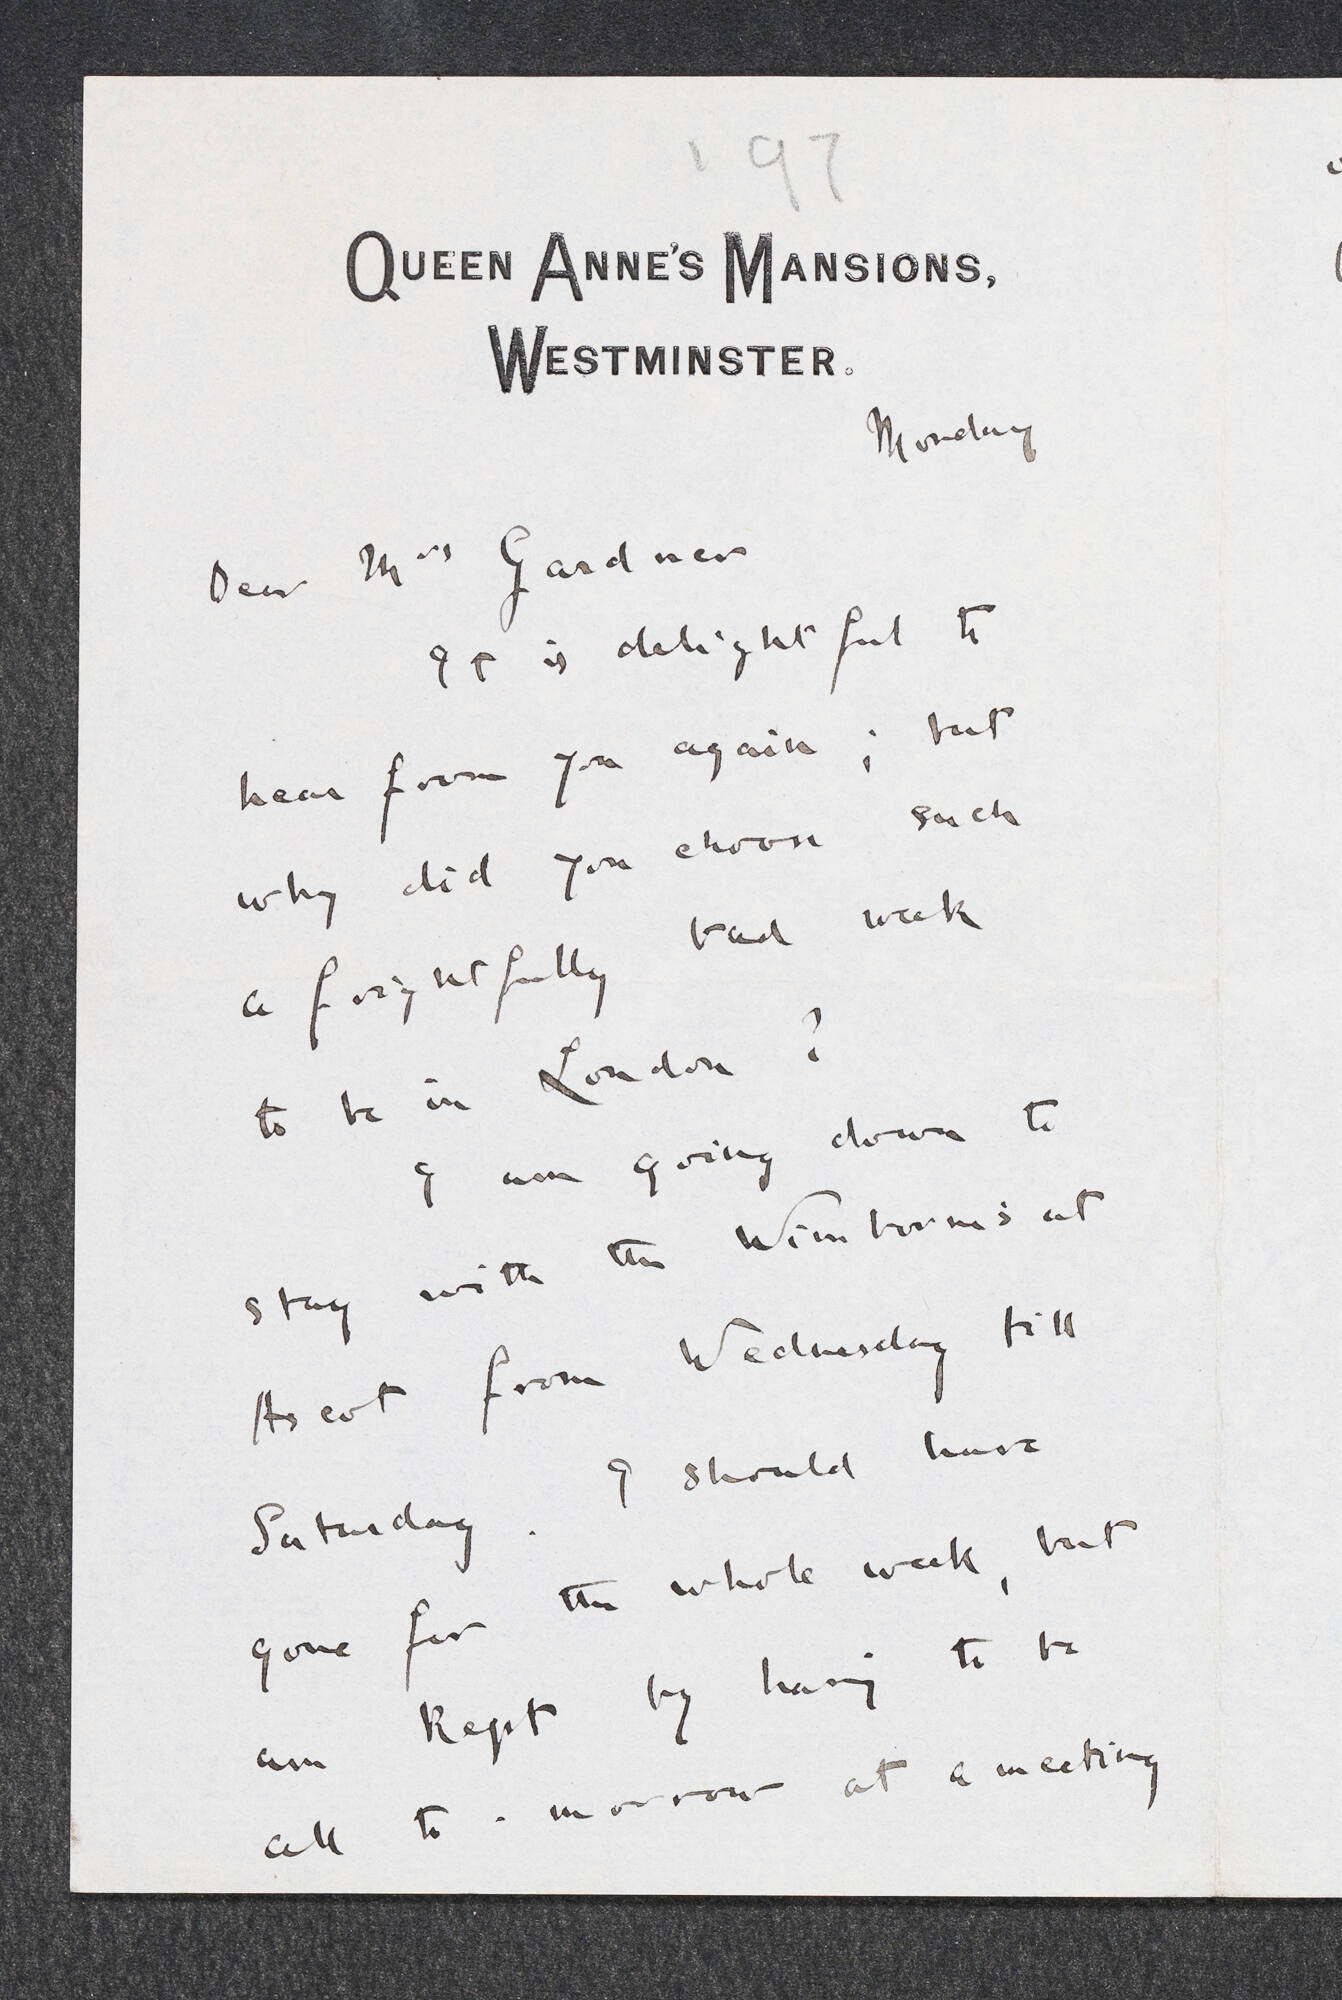 '97
QUEEN ANNE'S MANSIONS,
WESTMINSTER.
Monday
Dear Mrs Gardner
It is delightful to
hear from you again; but
why did you choose such
a frightfully bad week
to be in London?
I am going down to
stay with the Wimbornes at
Ascot from Wednesday till
Saturday. I should have
gone for the whole week, but
am kept by having to be
all to-morrow at a meeting